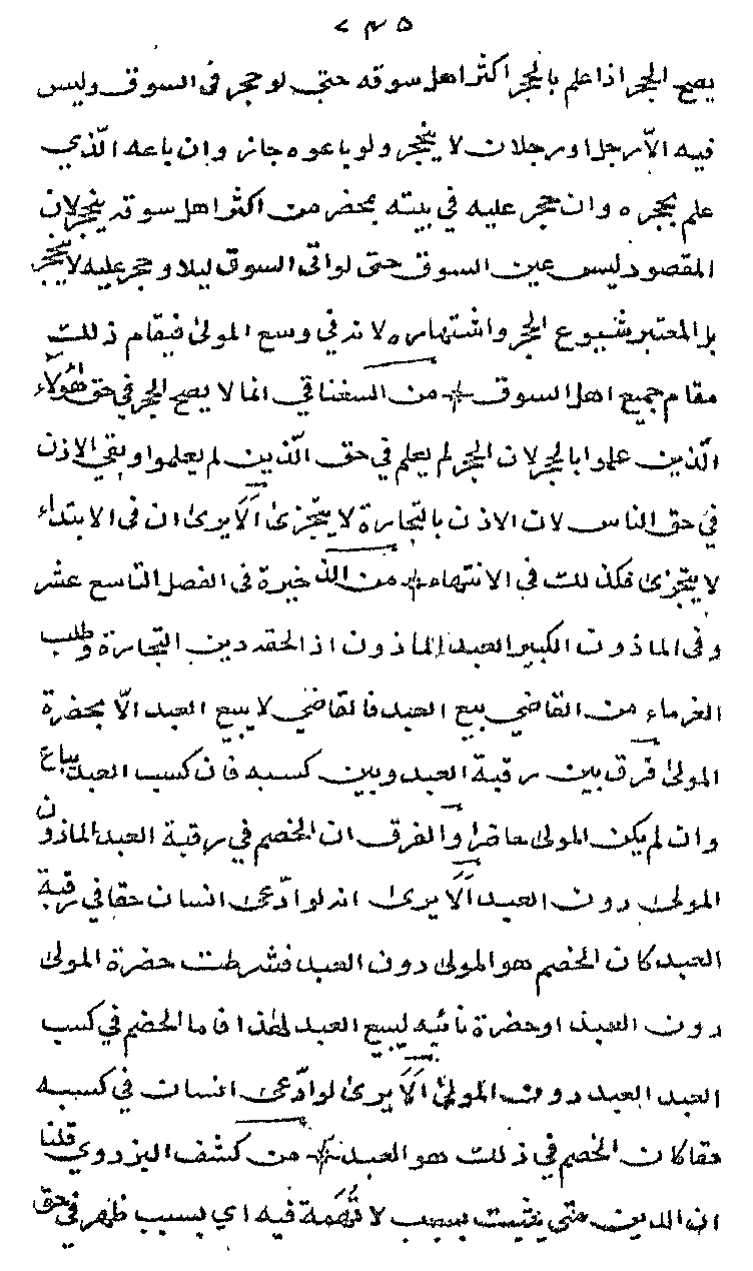 ٢٣٥
يصح الحجر اذا علم بالحجر اكثر اهل سوقه حتى لو حجر في السوق وليس
فيه الّا رجل او رجلان لا ينحجر ولو باعوه جاز وان باعه الّذي
علم بحجره وان حجر عليه في بيته بمحضر من اكثر اهل سوقه ينحجر لان
المقصود ليس عين السوق حتى لو اتى السوق ليلا وحجر عليه لا ينحجر
بل المعتبر شيوع الحجر واشتهاره لانه في وسع المولى فيقام ذلك
مقام جميع اهل السوق من السغناقي انما لا يصح الحجر في حق هؤلاء
الّذين علموا بالحجر لان الحجر لم يعلم في حق الّذين لم يعلموا وبقي الاذن
في حق الناس لان الاذن بالتجارة لا يتجزئ اَلَا يرى ان في الابتداء
لا يتجزئ فكذلك في الانتهاء من الذخيرة في الفصل التاسع عشر
وفي الماذون الكبير العبد الماذون اذا لحقه دين التجارة وطلب
الغرماء من القاضي بيع العبد فالقاضي لا يبيع العبد الّا بحضرة
المولى فرق بين رقبة العبد وبين كسبه فان كسب العبد يباع
وان لم يكن المولى حاضرا والفرق ان الخصم في رقبة العبد الماذون
المولى دون العبد اَلَا يرى انه لو ادّعى انسان حقا في رقبة
العبد كان الخصم هو المولى دون العبد فشرطت حضرة المولى
دون العبد او حضرة نائبه لبيع العبد لهذا فاما الخصم في كسب
العبد العبد دون المولى اَلَا يرى لو ادّعى انسان في كسبه
حقا كان الخصم في ذلك هو العبد من كشف البزدوي قلنا
ان الدين متى يثبت بسبب لا تُهَمة فيه اي بسبب ظهر في حق